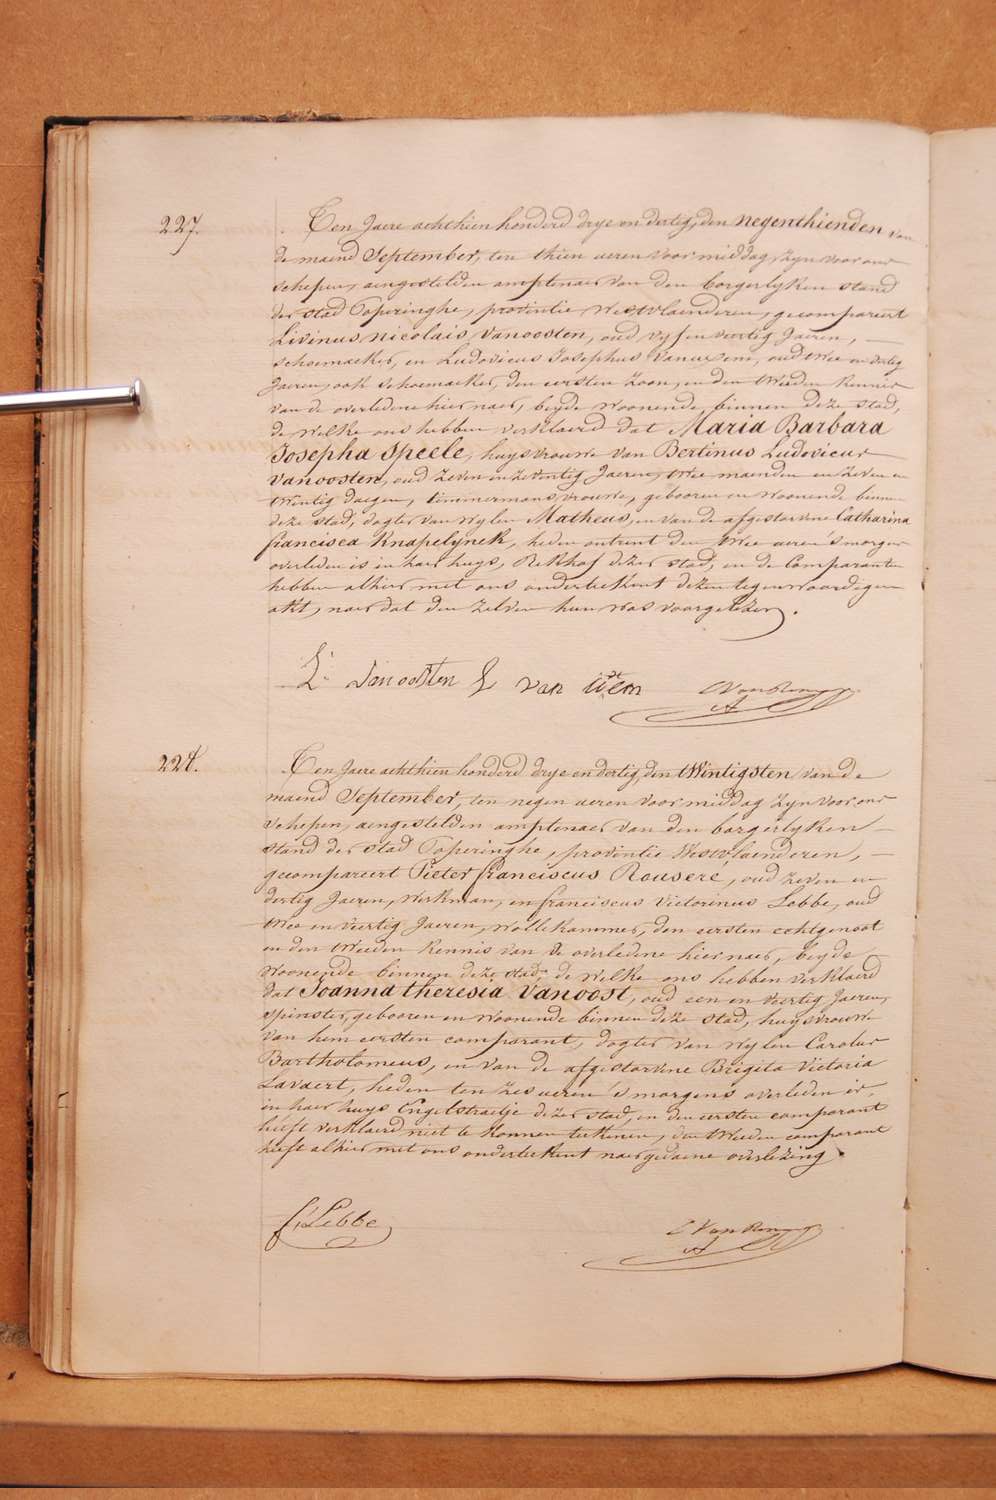 227.
Ten Jaere achthien honderd drye en dertig, den negenthienden van
de maend September, ten thien ueren voor middag, zyn voor ons
schepen, aengestelden amptenaer van den borgerlyken stand
der stad Poperinghe, provintie Westvlaenderen, gecompareert
Livinus Nicolais Vanoosten, oud vyf en veertig Jaeren, —
schoemaeker, en Ludovicus Josephus Vanuxem, oud twee en dertig
Jaeren, ook schoemaeker, den eersten zoon, en den tweeden kennis
van de overledene hier naer, beyde woonende binnen deze stad,
de welke ons hebben verklaerd dat Maria Barbara
Josepha Speele, huysvrouwe van Bertinus Ludovicus
Vanoosten, oud zeven en zeventig Jaeren, twee maenden en zeven en
twintig daegen, timmermansvrouwe, gebooren en woonende binnen
deze stad, dogter van wylen Matheus, en van de afgestorvene Catharina
francisca Knapelynck, heden ontrent den twee ueren 's morgens
overleden is in haer huys, Bekhof dezer stad, en de Comparanten
hebben alhier met ons onderteekent dezen tegenwoordigen
akt, naer dat den zelven hun was voorgelezen.
L: Vanoosten L van uxem
224.
Ten Jaere achthien honderd drye en dertig, den twintigsten van de
maend September, ten negen ueren voor middag zyn voor ons
schepen, aengestelden amptenaer van den borgerlyken —
stand der stad Poperinghe, provintie Westvlaenderen, —
gecompareert Pieter franciscus Rousere, oud zeven en
dertig Jaeren, werkman, en franciscus Victorinus Lebbe, oud
twee en veertig Jaeren, wollekammer, den eersten echtgenoot
en den tweeden kennis van de overledene hier naer, beyde
woonende binnen deze stad, de welke ons hebben verklaerd
dat Joanna theresia Vanoost, oud een en veertig Jaeren,
spinster, gebooren en woonende binnen deze stad, huysvrouwe
van hem eersten comparant, dogter van wylen Carolus
Bartholomeus, en van de afgestorvene Brigita Victoria
Lavaert, heden ten zes ueren 's morgens overleden is,
in haer huys Engelstraetje dezer stad, en den eersten comparant
heeft verklaerd niet te konnen teekenen, den tweeden comparant
heeft alhier met ons onderteekent naer gedaene overlezing.
f: Lebbe